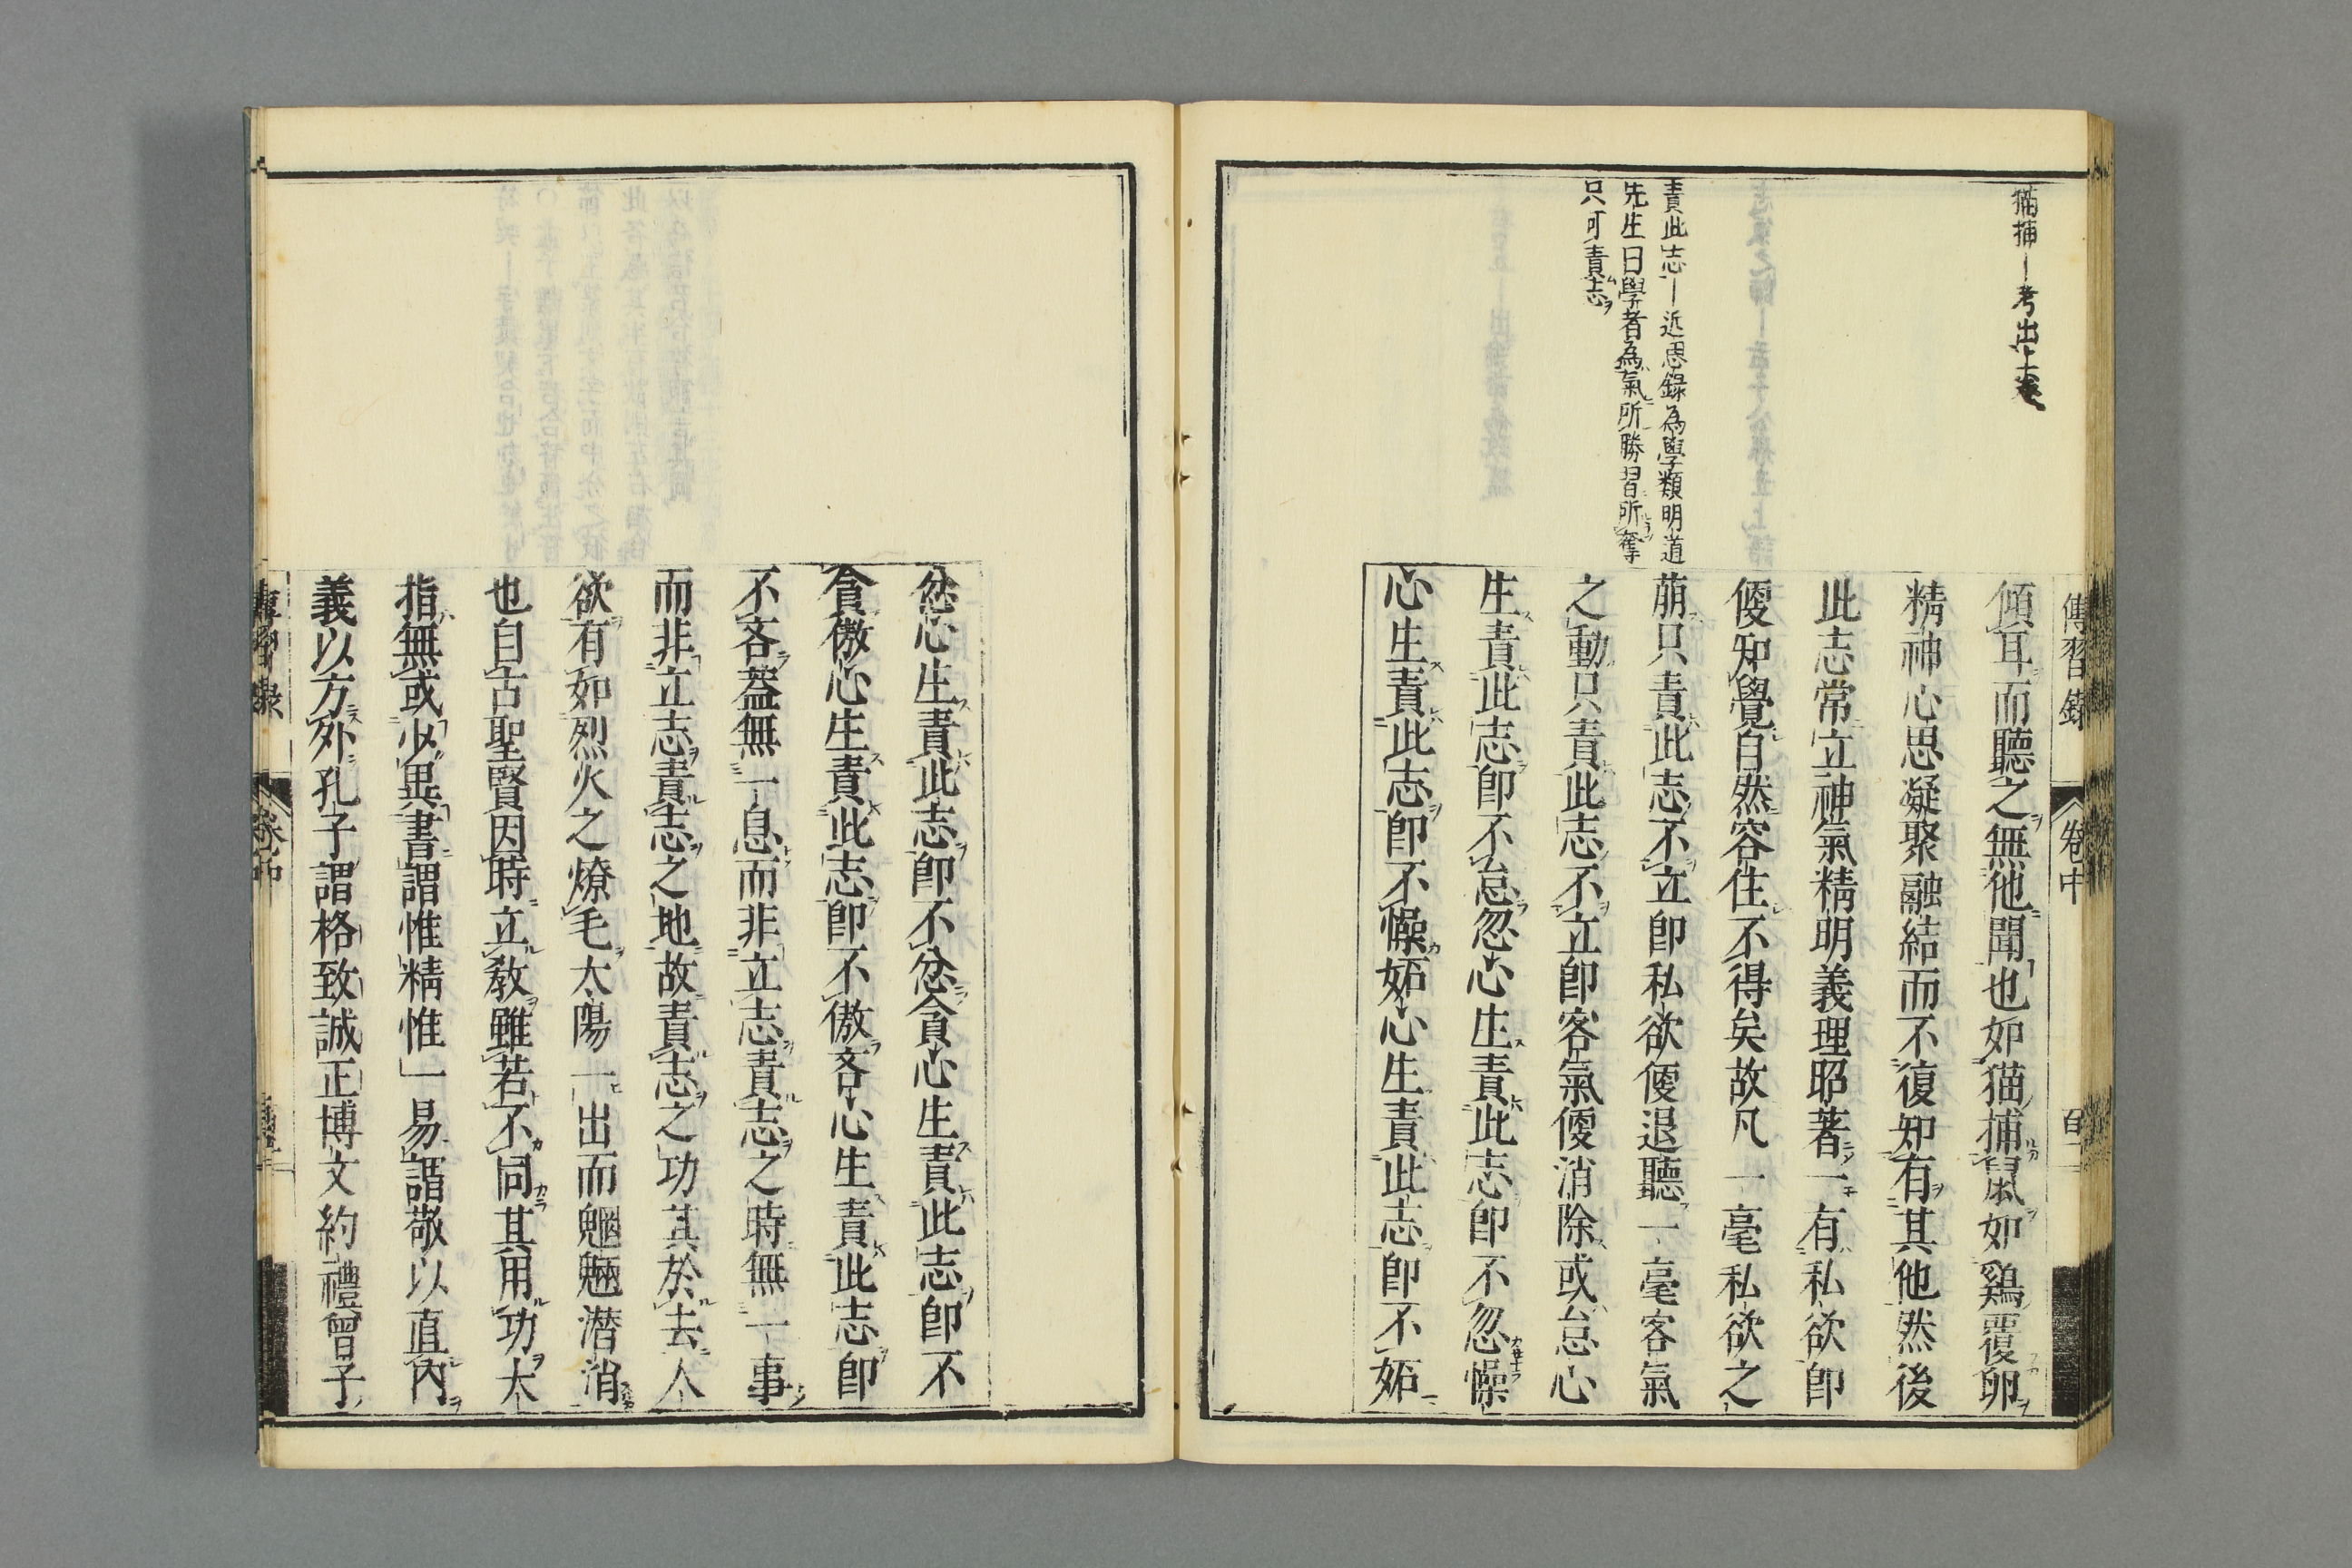 傳習錄
卷中
猫捕｜考出上卷
責此志｜近思錄為學類明道
先生曰學者為氣所勝習所奪
只可責志
傾耳而聽之無他聞也如猫捕鼠如鷄覆卵
精神心思凝聚融結而不復知有其他然後
此志常立神氣精明義理昭著一有私欲即
便知覺自然容住不得矣故凡一毫私欲之
萠只責此志不立卽私欲便退聽一毫客氣
之動只責此志不立卽客氣便消除或怠心
生責此志卽不怠忽心生責此志卽不忽懆
心生責此志卽不懆妬心生責此志卽不妬
忿心生責此志卽不忿貪心生責此志卽不
貪傲心生責此志卽不傲吝心生責此志卽
不吝葢無一息而非立志責志之時無一事
而非立志責志之地故責志之功其於去人
欲有如烈火之燎毛太陽一出而魍魎潜消
也自古聖賢因時立敎雖若不同其用功大
指無或少異書謂惟精惟一易謂敬以直內
義以方外孔子謂格致誠正博文約禮曾子
傳習錄
卷中